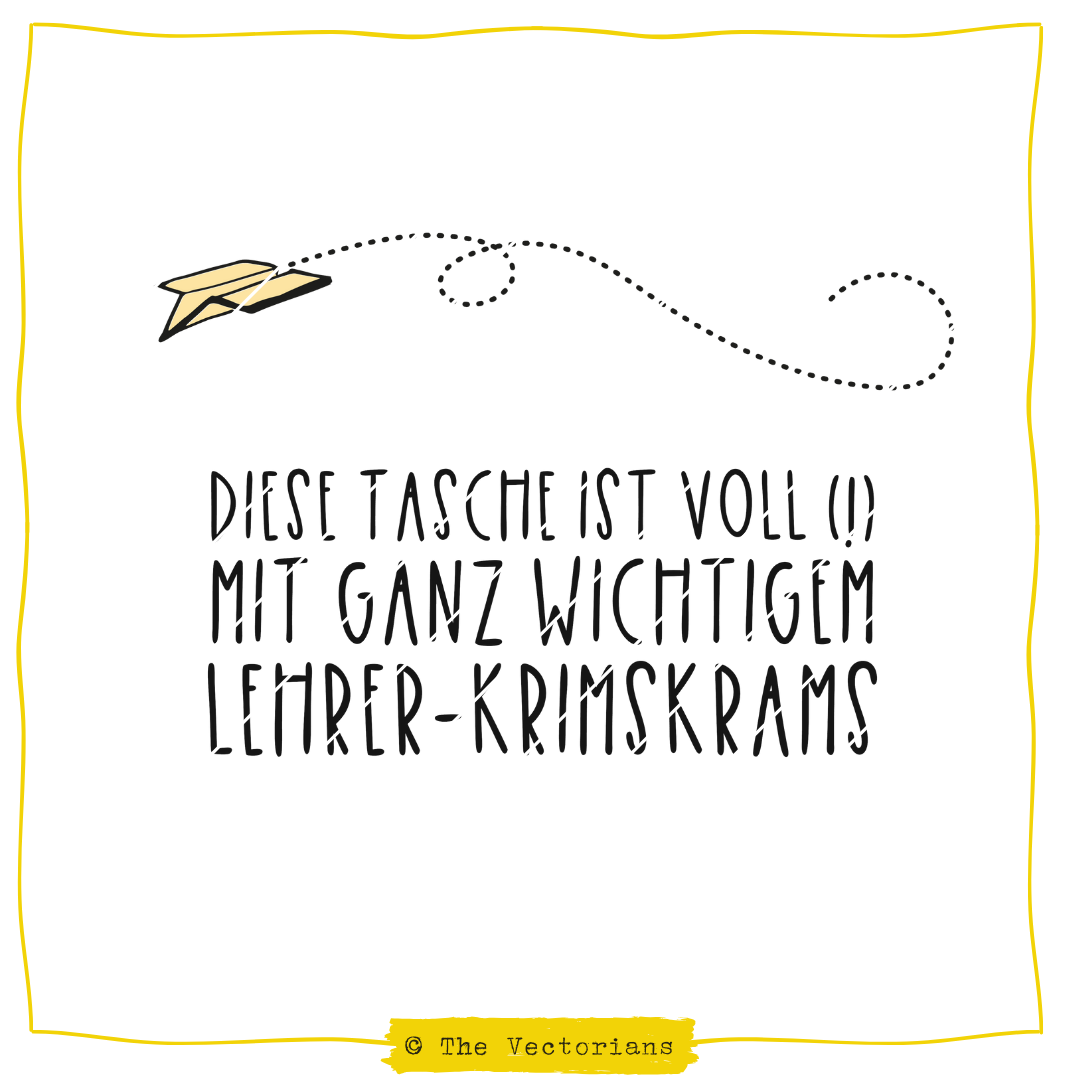 DIESE TASCHE IST VOLL (!)
MIT GANZ WICHTIGEM
LEHRER-KRIMSKRAMS
© The Vectorians